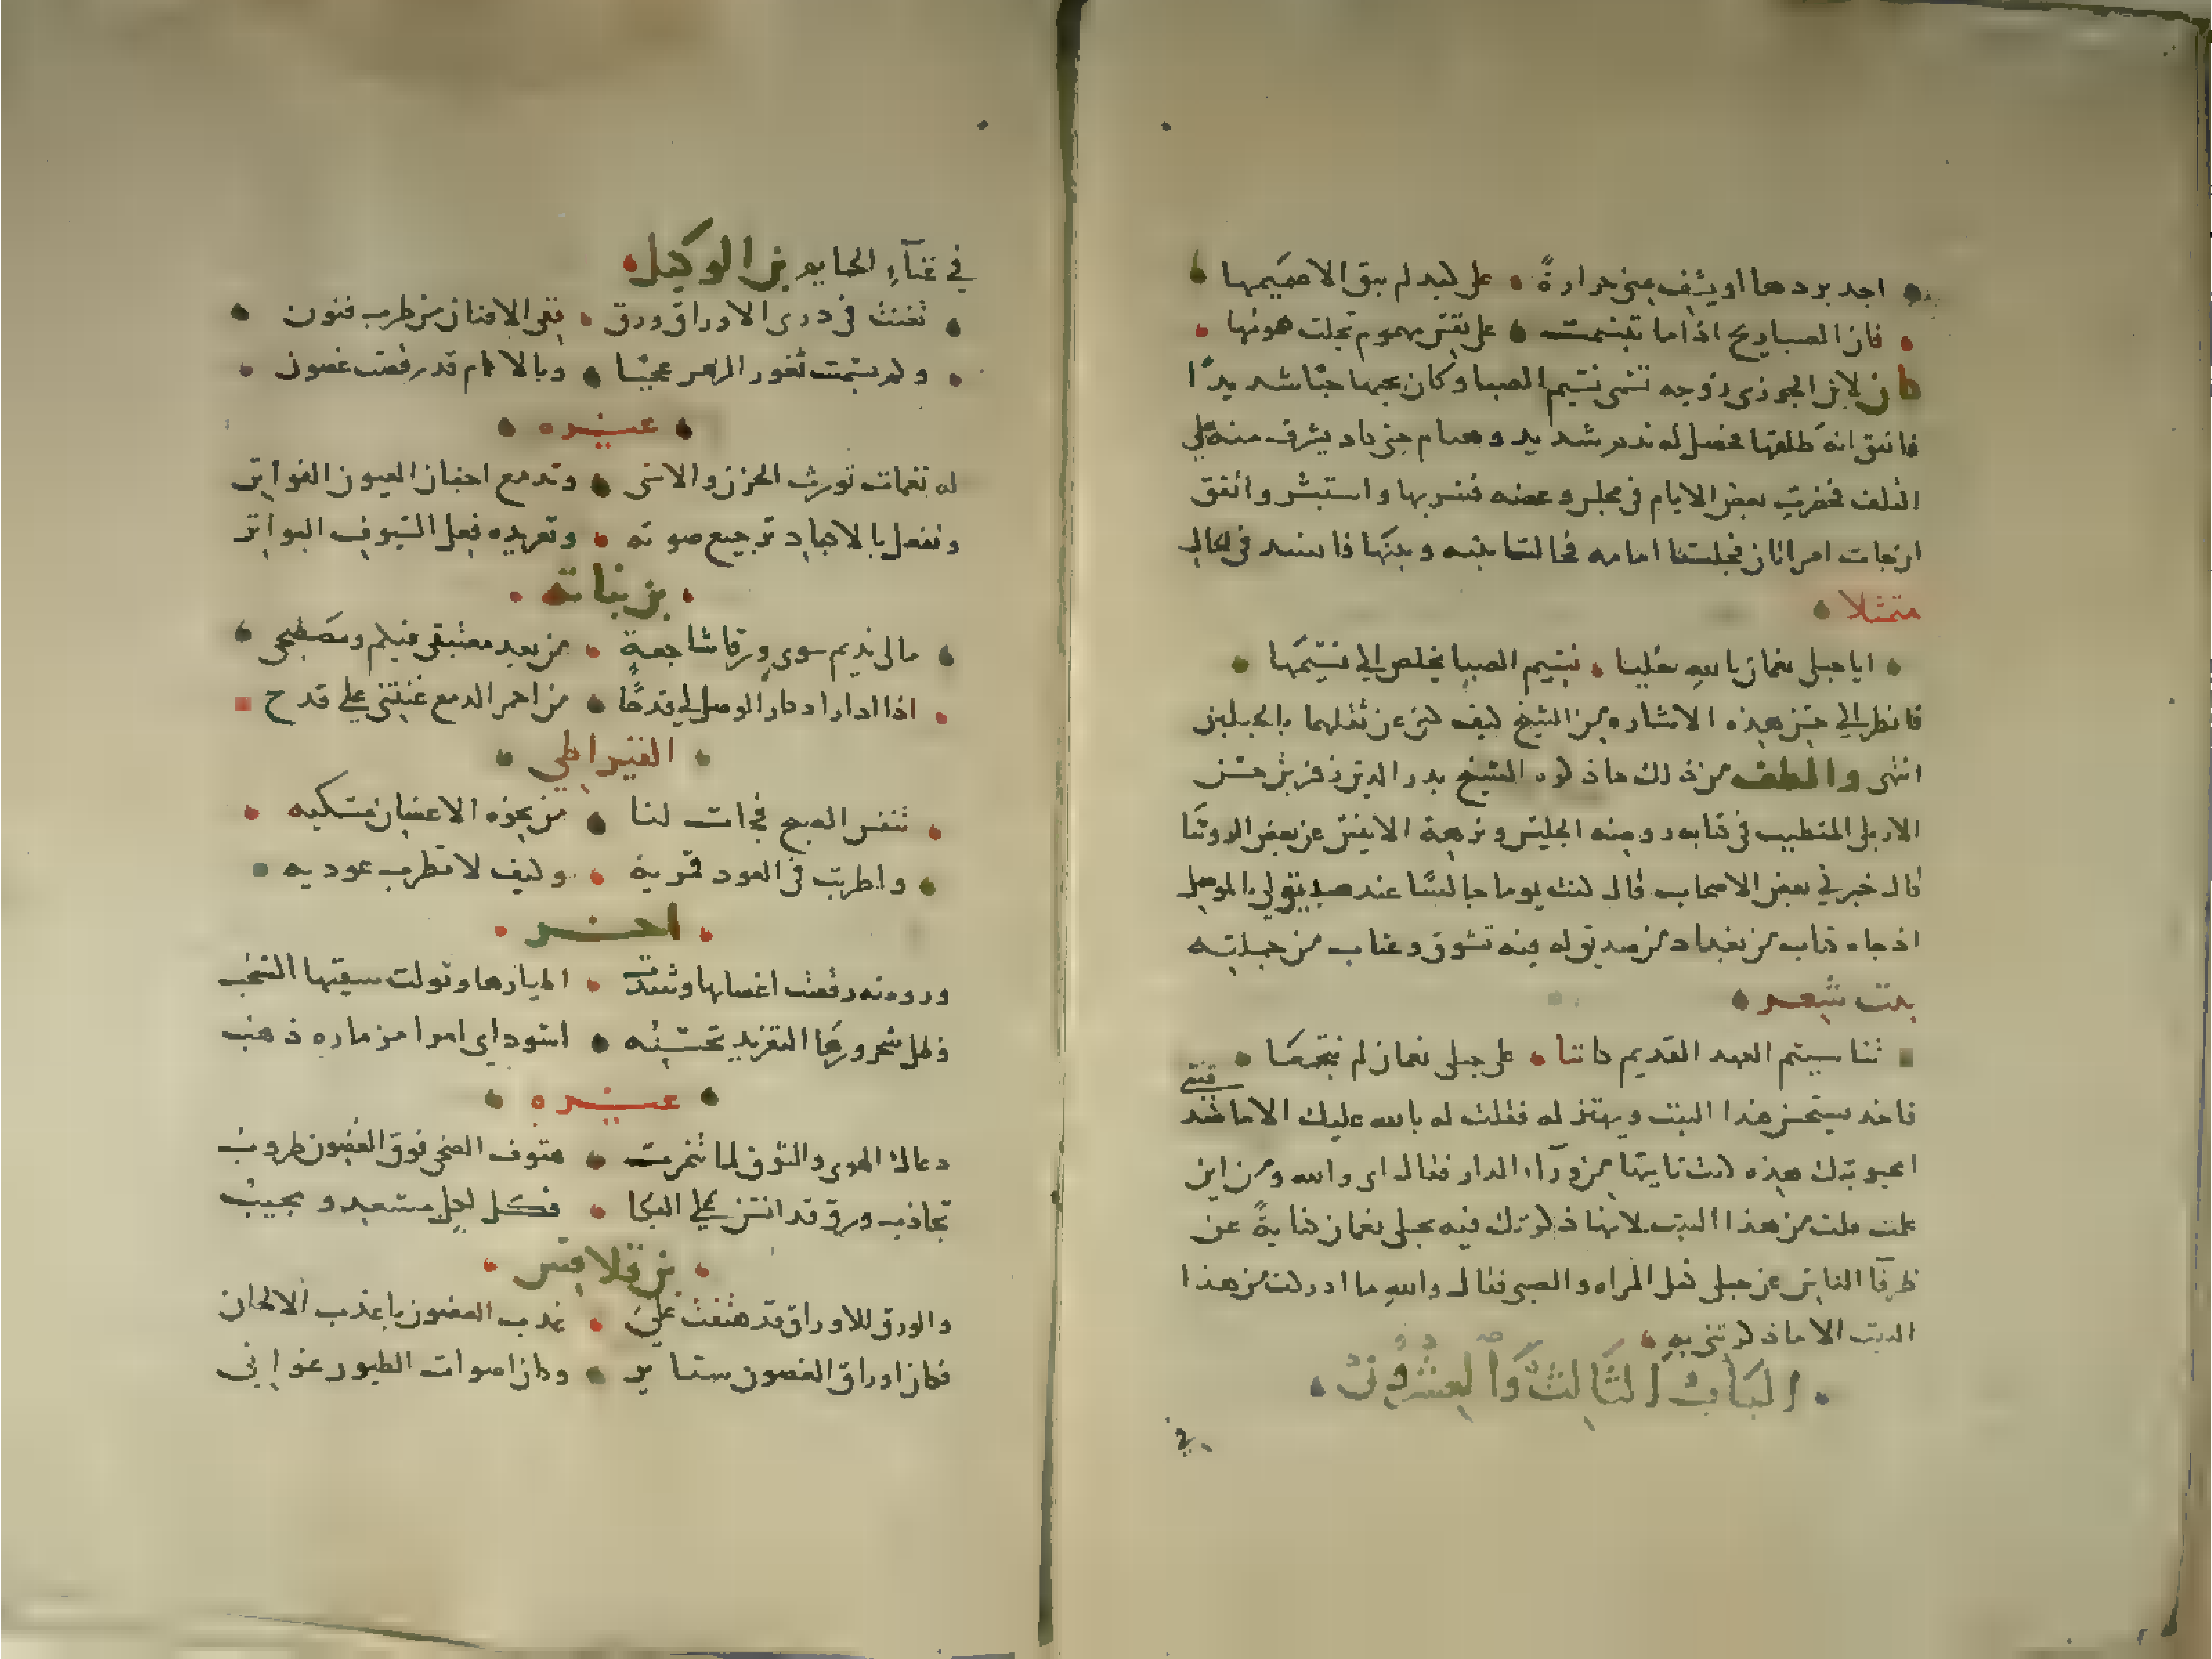 اجد بردها او يشف مني حرارةً • على كبد لم يبق الا صميمها
فان الصبا ريح اذا ما تنسمت • على نفس مهموم تجلت همومها
كان لابن الجوزي زوجه تسمى نسيم الصبا وكان يحبها حبّا شديدًا
فاتفق انه طلقها فحصل له ندم شديد وهيام حتى كاد يشرف منه على
التلف فحضرت بعض الايام في مجلس وعضه فسر بها واستبشر واتفق
ان جات امراتان فجلستا امامه فحالتا بينه وبينها فانشد في الحال
متمثلا
ايا جبلي نعمان بالله خليا • نسيم الصبا يخلص الي نسيمها
فانظر الي حسن هذه الاشاره من الشيخ كيف كنى عن ثقلهما بالجبلين
انتهى والطف من ذلك ما ذكره الشيخ بدر الدين زفر بن حسن
الاربلي المتطبب في كتابه روضة الجليس ونزهة الانيس عن بعض الروسا
قال خبرني بعض الاصحاب قال كنت يوما جالسًا عند صديق لي بالموصل
اذ جاه كتاب من بغداد من صديق له فيه تشوق وعتاب من جملته
بيت شعر
تناسيتم العهد القديم كاننا • على جبلي نعمان لم نتجمعا
فاخذ يستحسن هذا البيت ويهتز له فقلت له بالله عليك الا ما
محبوبتك هذه كنت تاتيها من وراء الدار فقال اي والله ومن اين
علمت قلت من هذا البيت لانها ذكرتك فيه بجبلي نعمان كنايةً عن
المراه والصبي فقال والله ما ادركت من هذا
البيت الا ما ذكرتني به
البَابُ الثَّالِثُ وَالعِشْرُونَ
في
في غناءِ الحمايم بن الوكيل
تغنت في ذرى الاوراق ورق • ففي الافنان من طرب فنون
وكم بسمت ثغور الزهر عجبًا • وبالاكمام قد رقصت غصون
غيره
له نغمات تورث الحزن والاسى • وتدمع اجفان العيون الفواتر
وتفعل بالاكباد ترجيع صوته • وتغريده فعل السيوف البواتر
بن نباته
مالي نديم سوى ورقا ساجعةٍ • من بعد مغتبقي فيكم ومصطبحي
اذا ادار ادكار الوصل لي قدحًا • من احمر الدمع غنتني على قدح
القيراطي
تنفس الصبح فجات لنا • من نحوه الاغصان مسكيه
واطربت في العود قمرية • وكيف لا تطرب عوديه
اخر
وروضه رقصت اغصانها وشدت • اطيارها وتولت سقيها السحب
وظل شحرورها التغريد تحسبه • اسود ا زامرا مزماره ذهب
غيره
دعاك الهوى والشوق لما ترنمت • هتوف الضحى فوق الغصون طروب
تجاذب ورق قد على البكا • فكل لكل مسعد ومجيب
بن قلاقس
والورق للاوراق قد هتفت على • عذب الغصون باعذب الالحان
فكان اوراق الغصون ستاير • وكان اصوات الطيور غواني